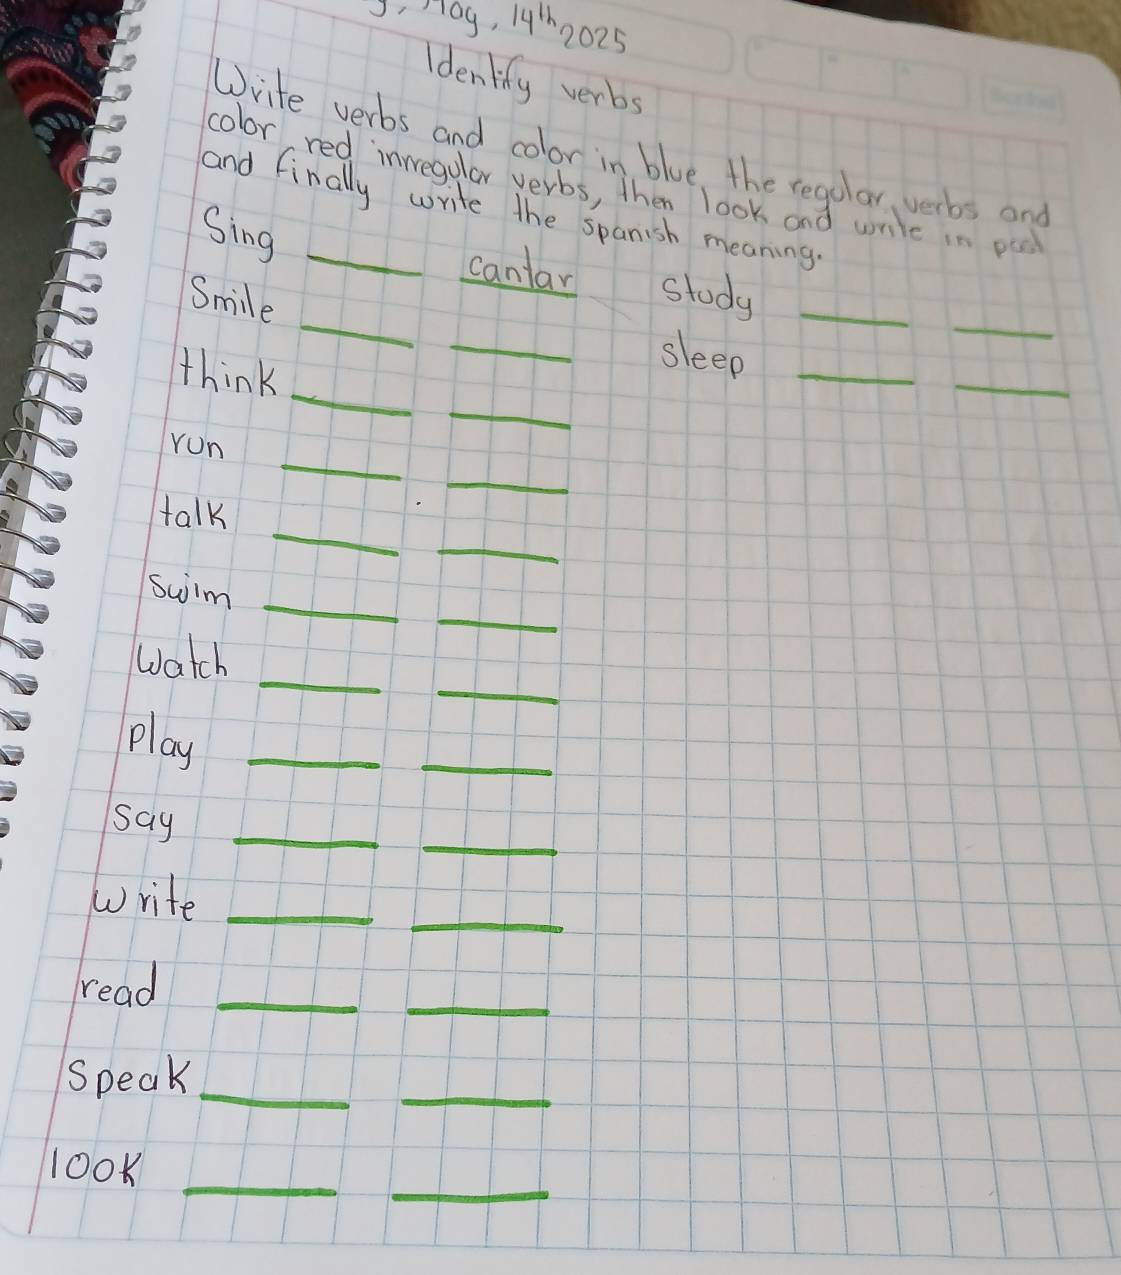 14th 2025
Identify verbs
Write verbs and color in blue, the regular verbs and
color red inrregular verbs, then look and write in past
and finally write the spanish meaning.
Sing ____ cantar study ____ ____
Smile ____ ____ sleep ____ ____
think ____ ____
run ____ ____
talk ____ ____
swim ____ ____
Watch ____ ____
play ____ ____
say ____ ____
Write ____ ____
read ____ ____
Speak ____ ____
look ____ ____